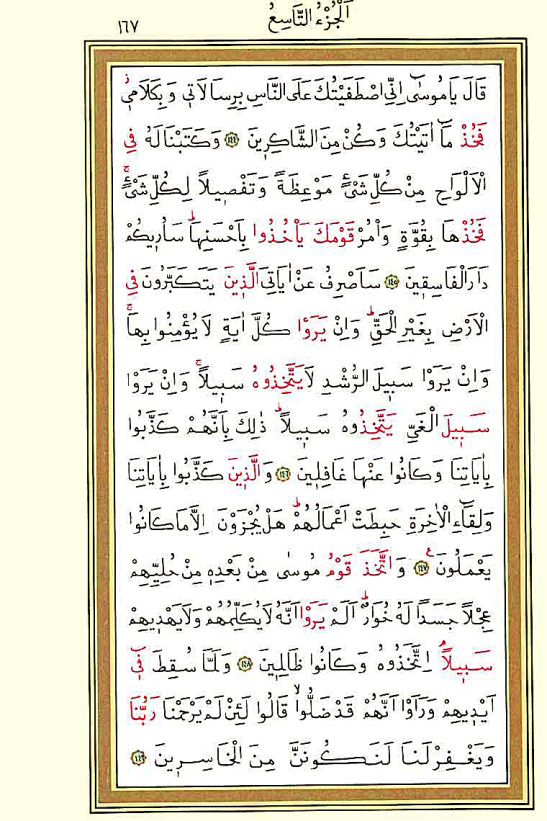 اَلْجُزْءُ التَّاسِعُ
١٦٧
قَالَ يَا مُوسٰٓى اِنِّى اصْطَفَيْتُكَ عَلَى النَّاسِ بِرِسَالَاتٖى وَبِكَلَامٖىۘ
فَخُذْ مَٓا اٰتَيْتُكَ وَكُنْ مِنَ الشَّاكِرٖينَ ﴿١٤٤﴾ وَكَتَبْنَا لَهُ فِى
الْاَلْوَاحِ مِنْ كُلِّ شَىْءٍ مَوْعِظَةً وَتَفْصٖيلاً لِكُلِّ شَىْءٍۚ
فَخُذْهَا بِقُوَّةٍ وَاْمُرْ قَوْمَكَ يَاْخُذُوا بِاَحْسَنِهَاۜ سَاُرٖيكُمْ
دَارَ الْفَاسِقٖينَ ﴿١٤٥﴾ سَاَصْرِفُ عَنْ اٰيَاتِىَ الَّذٖينَ يَتَكَبَّرُونَ فِى
الْاَرْضِ بِغَيْرِ الْحَقِّۜ وَاِنْ يَرَوْا كُلَّ اٰيَةٍ لَا يُؤْمِنُوا بِهَاۚ
وَاِنْ يَرَوْا سَبٖيلَ الرُّشْدِ لَا يَتَّخِذُوهُ سَبٖيلاًۚ وَاِنْ يَرَوْا
سَبٖيلَ الْغَىِّ يَتَّخِذُوهُ سَبٖيلاًۜ ذٰلِكَ بِاَنَّهُمْ كَذَّبُوا
بِاٰيَاتِنَا وَكَانُوا عَنْهَا غَافِلٖينَ ﴿١٤٦﴾ وَالَّذٖينَ كَذَّبُوا بِاٰيَاتِنَا
وَلِقَٓاءِ الْاٰخِرَةِ حَبِطَتْ اَعْمَالُهُمْۜ هَلْ يُجْزَوْنَ اِلَّا مَا كَانُوا
يَعْمَلُونَ۟ ﴿١٤٧﴾ وَاتَّخَذَ قَوْمُ مُوسٰى مِنْ بَعْدِهٖ مِنْ حُلِيِّهِمْ
عِجْلاً جَسَداً لَهُ خُوَارٌۜ اَلَمْ يَرَوْا اَنَّهُ لَا يُكَلِّمُهُمْ وَلَا يَهْدٖيهِمْ
سَبٖيلاًۘ اِتَّخَذُوهُ وَكَانُوا ظَالِمٖينَ ﴿١٤٨﴾ وَلَمَّا سُقِطَ فٖٓى
اَيْدٖيهِمْ وَرَاَوْا اَنَّهُمْ قَدْ ضَلُّواۙ قَالُوا لَئِنْ لَمْ يَرْحَمْنَا رَبُّنَا
وَيَغْفِرْ لَنَا لَنَكُونَنَّ مِنَ الْخَاسِرٖينَ ﴿١٤٩﴾